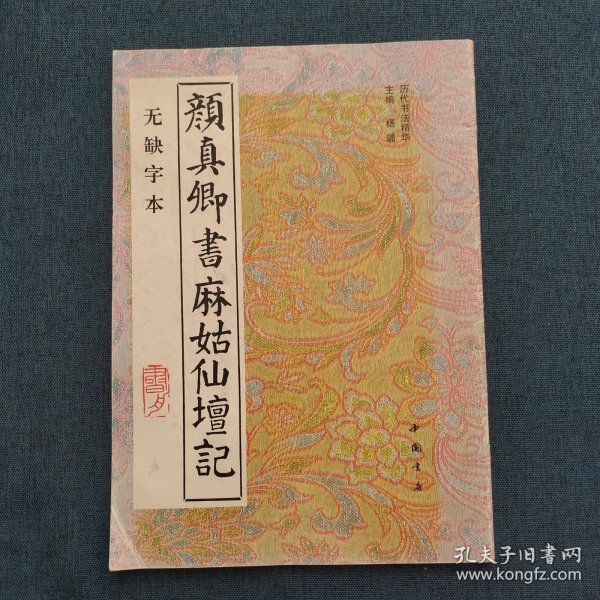 历代书法精华
主编 杨璐
顔真卿書麻姑仙壇記
无缺字本
中国书店
孔夫子旧书网
www.kongfz.com